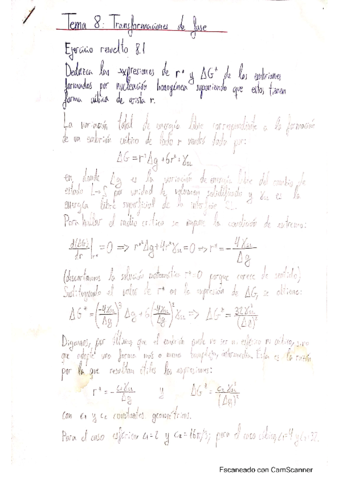 Tema 8: Transformaciones de fase
Ejercicio resuelto 8.1
Deduzca las expresiones de r* y ΔG* de los embriones
formados por nucleación homogénea suponiendo que estos tienen
forma cúbica de arista r.
La variación total de energía libre correspondiente a la formación
de un embrión cúbico de lado r vendrá dado por:
ΔG = r³Δg + 6r²γsl
en donde Δg es la variación de energía libre del cambio de
estado L→S por unidad de volumen y γsl es la
energía libre superficial de la interfase
Para hallar el radio crítico se impone la condición de extremo:
d(ΔG)/dr |r* = 0 ⇒ r*Δg + 4γsl = 0 ⇒ r* = -4γsl/Δg
(descartamos la solución matemática r=0 porque carece de sentido)
Sustituyendo el valor de r* en la expresión de ΔG, se obtiene:
ΔG* = (-4γsl/Δg)³ Δg + 6(-4γsl/Δg)² γsl ⇒ ΔG* = 32γsl³/(Δg)²
Digamos, por último que el embrión puede no ser ni esférico ni cúbico, sino
que adopte una forma más o menos intermedia. Esta es la razón
por la que resultan útiles las expresiones:
r* = -c₁γsl/Δg y ΔG* = c₂γsl³/(Δg)²
con c₁ y c₂ constantes geométricas.
Para el caso esférico c₁=2 y c₂=16π/3, para el caso cúbico c₁=4 y c₂=32.
Escaneado con CamScanner